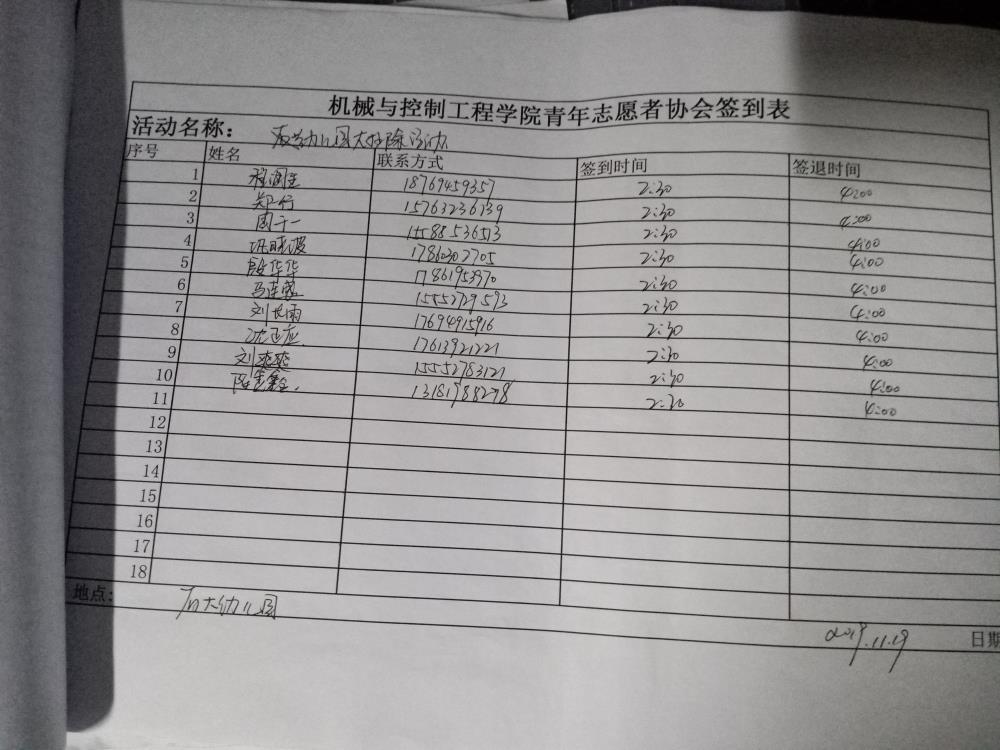 机械与控制工程学院青年志愿者协会签到表
活动名称： 幼儿园大扫除活动
序号 姓名 联系方式 签到时间 签退时间
1 程润圭 18769459357 2:30 4:00
2 郑行 15763236139 2:30 4:00
3 周于一 15588536513 2:30 4:00
4 巩晓波 17860302705 2:30 4:00
5 殷华华 17861953970 2:30 4:00
6 马连蓉 15552729593 2:30 4:00
7 刘长雨 17694915916 2:30 4:00
8 沈正应 17613921221 2:30 4:00
9 刘爽爽 15552783121 2:30 4:00
10 陈鑫鑫 13181988278 2:30 4:00
11
12
13
14
15
16
17
18
地点： 石大幼儿园
2019.11.19 日期